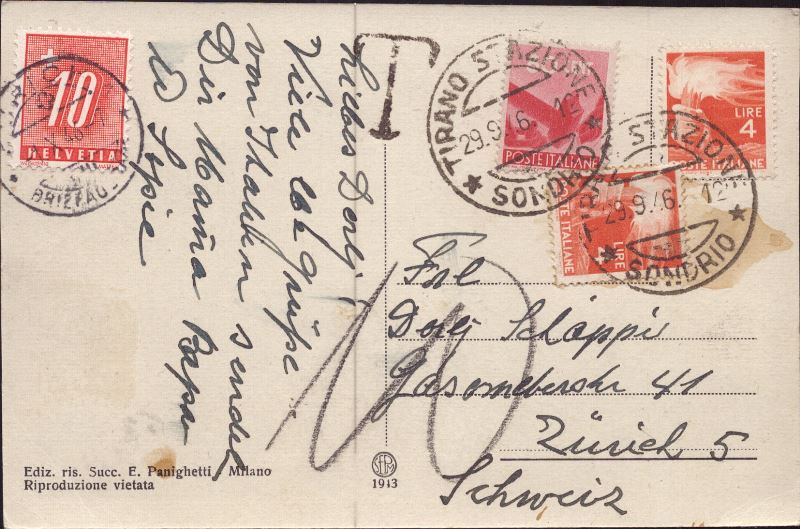 Liebes Dorly!
Viele lb Grüsse
von Italien sendet
Dir Mama Papa
T
10
HELVETIA
TIRANO STAZIONE
29.9.46. 12
SONDRIO
POSTE ITALIANE
LIRE
4
POSTE ITALIANE
STAZIONE
29.9.46. 12
SONDRIO
LIRE
4
POSTE ITALIANE
Frl
Dorly Schläppi
Gasometerstr 41
Zürich 5
Schweiz
10
Ediz. ris. Succ. E. Panighetti / Milano
Riproduzione vietata
1943